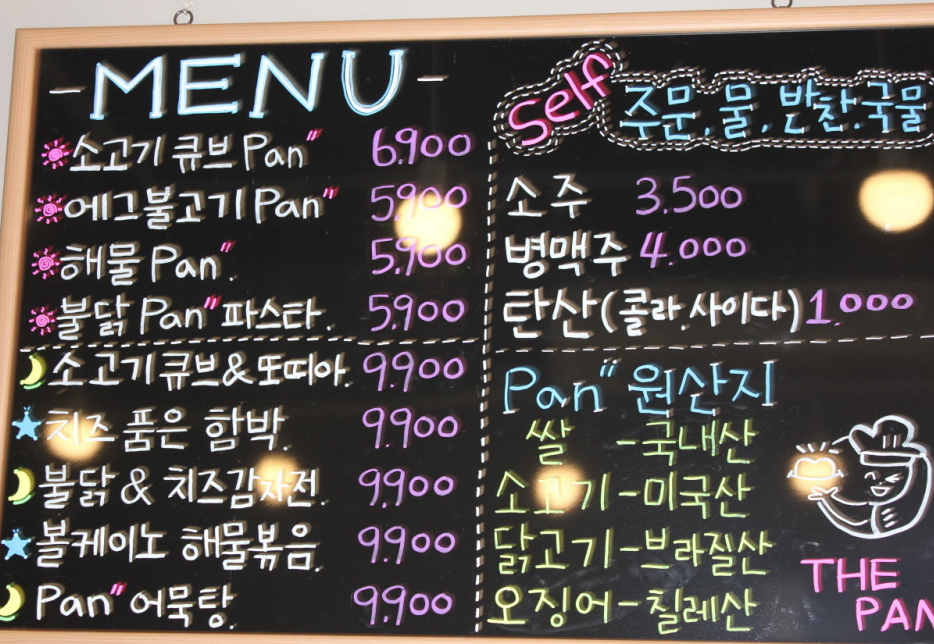 MENU
소고기 큐브 Pan" 6.900
에그불고기 Pan" 5.900
해물 Pan". 5.900
불닭 Pan" 파스타. 5.900
소고기큐브&또띠아. 9.900
치즈 품은 함박. 9.900
불닭 & 치즈감자전. 9.900
볼케이노 해물볶음. 9.900
Pan" 어묵탕. 9.900
Self 주문.물.반찬.국물
소주 3.500
병맥주 4.000
탄산(콜라.사이다) 1.000
Pan" 원산지
쌀 - 국내산
소고기 - 미국산
닭고기 - 브라질산
오징어 - 칠레산
THE
PAN